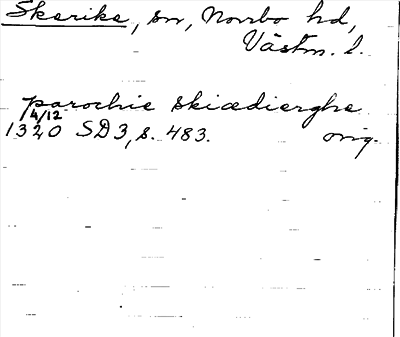 Skerike, sn, Norrbo hd,
Västm. l.
parochie skiædierghe
4/12
1320 SD3, s. 483. orig.